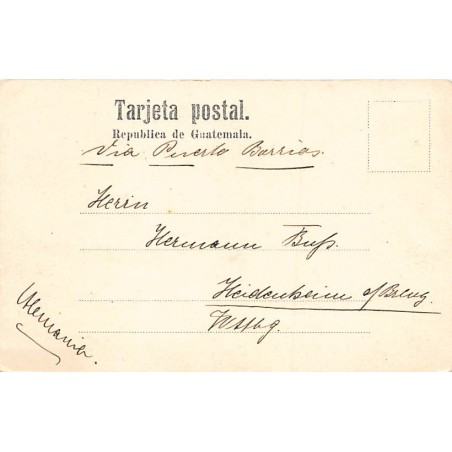 Tarjeta postal.
Republica de Guatemala.
Via Puerto Barrios.
Herrn
Hermann Buß.
Heidenheim a/Brenz.
Wttbg
Alemania.